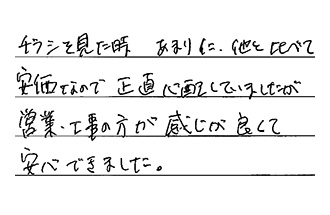 チラシを見た時 あまりに、他と比べて
安価なので 正直心配していましたが
営業・工事の方が 感じが良くて
安心できました。